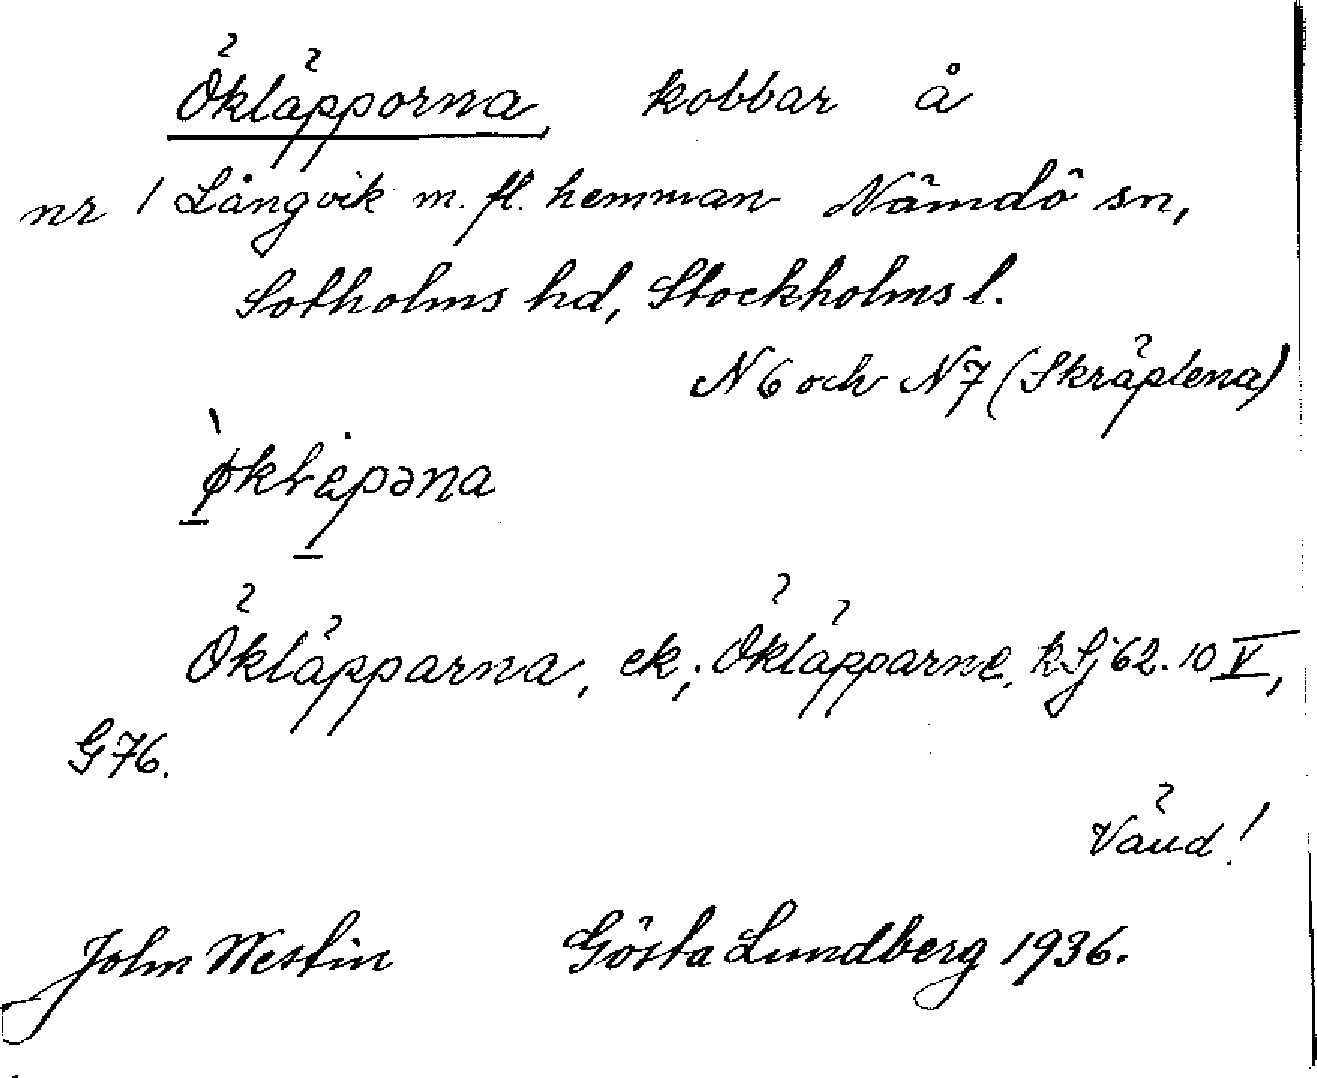 Ökläpporna, kobbar å
nr 1 Långvik m. fl. hemman Nämdö sn,
Sotholms hd, Stockholms l.
N6 och N7 (Skräplena)
Ökläpparna, ek; Ökläpparne, k Sj 62. 10 V,
G76.
Vänd!
John Westin Gösta Lundberg 1936.